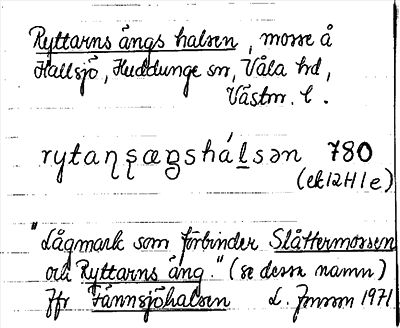 Ryttarns ängs halsen, mosse å
Hallsjö, Huddunge sn, Våla hd,
Västm. l.
rytaɳʂæŋshálsən 780
(ek 12 H 1 e)
"Lågmark som förbinder Slåttermossen
och Ryttarns äng." (se dessa namn)
Jfr Fännsjöhalsen L. Jonsson 1971